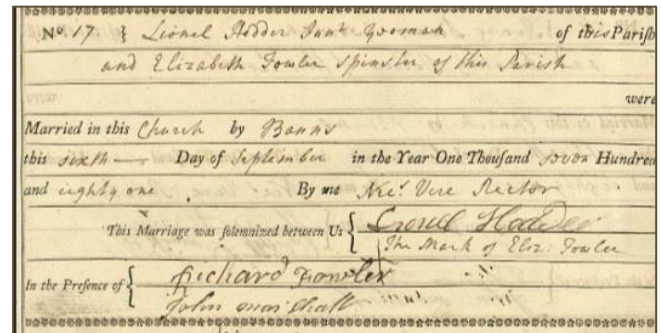 No. 17 } Lionel Hodder Junr. Yeoman of this Parish
and Elizabeth Fowler Spinster of this Parish
were
Married in this Church by Banns
this sixth Day of September in the Year One Thousand seven Hundred
and eighty one By me Vere Rector
This Marriage was solemnized between Us { Lionel Hodder
The Mark of Eliz: Fowler
In the Presence of { Richard Fowler
John marshall